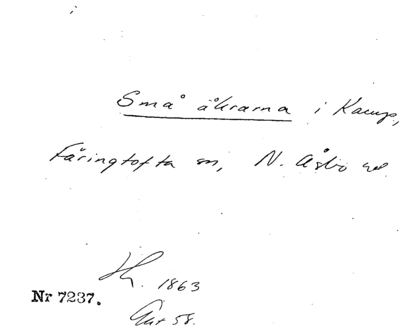 Små åkrarna i Kamp,
Färingtofta sn, N. Åsbo hd.
1863
Nr 7237.
58.